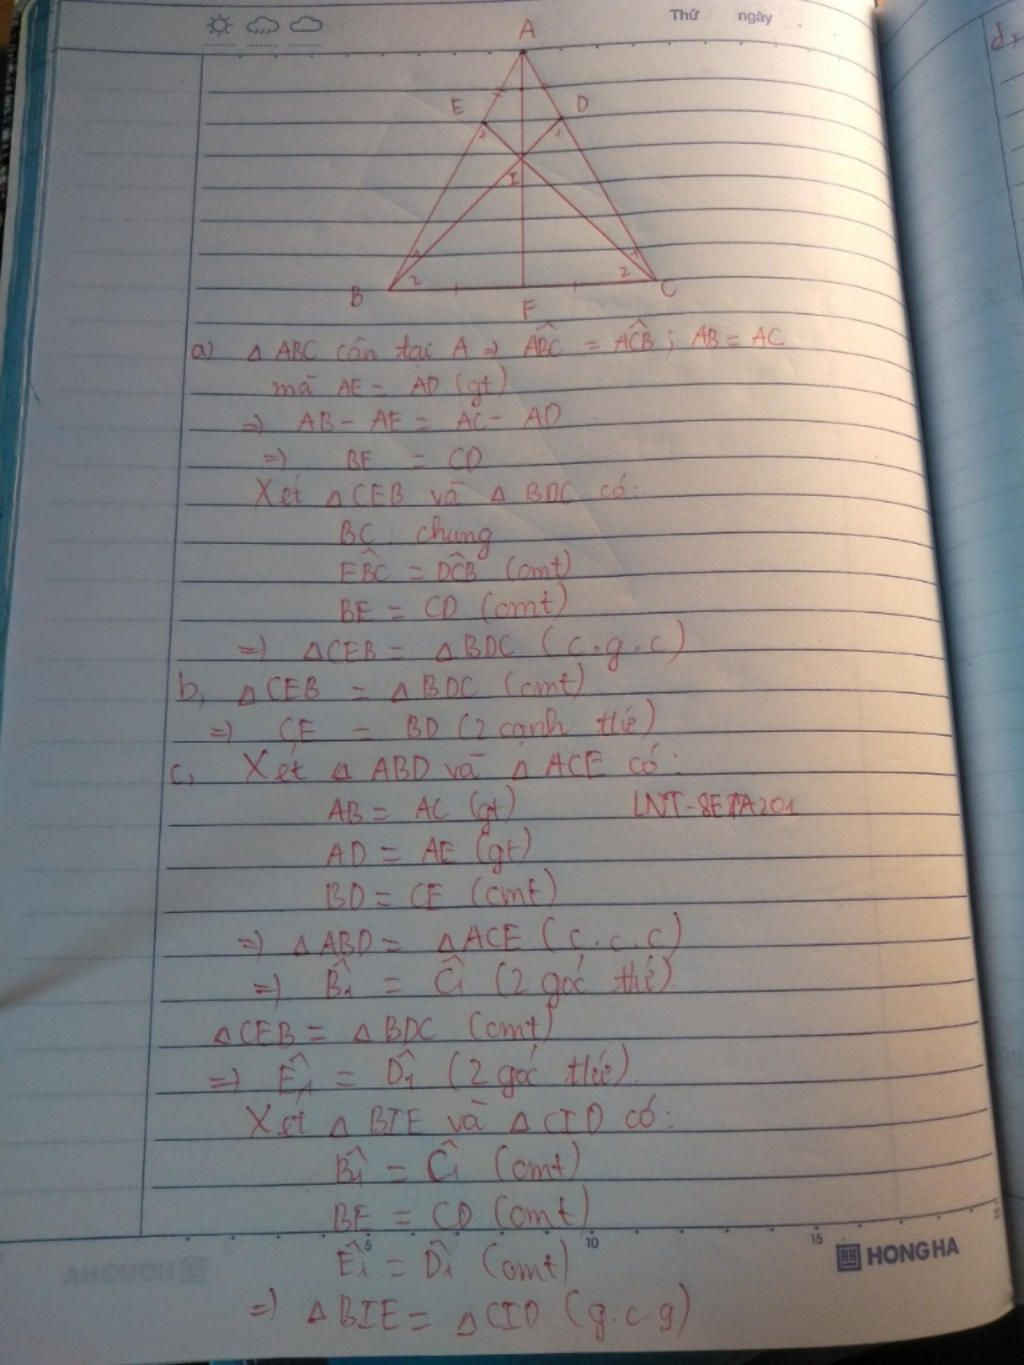 Thứ ngày
A
E D
I
1 1
1 1
2 2
B F C
d,
a) Δ ABC cân tại A => ABC^ = ACB^ ; AB = AC
mà AE = AD (gt)
=> AB - AE = AC - AD
=> BE = CD
Xét Δ CEB và Δ BDC có:
BC : chung
EBC^ = DCB^ (cmt)
BE = CD (cmt)
=> ΔCEB = ΔBDC (c.g.c)
b, ΔCEB = ΔBDC (cmt)
=> CE = BD (2 cạnh t/ứ)
c, Xét Δ ABD và Δ ACE có:
AB = AC (gt)
LNT-SETA201
AD = AE (gt)
BD = CE (cmt)
=> ΔABD = ΔACE (c.c.c)
=> B1^ = C1^ (2 góc t/ứ)
ΔCEB = ΔBDC (cmt)
=> E1^ = D1^ (2 góc t/ứ)
Xét Δ BIE và Δ CID có:
B1^ = C1^ (cmt)
BE = CD (cmt)
5 10 15
E1^ = D1^ (cmt)
HH HONG HA
=> ΔBIE = ΔCID (g.c.g)